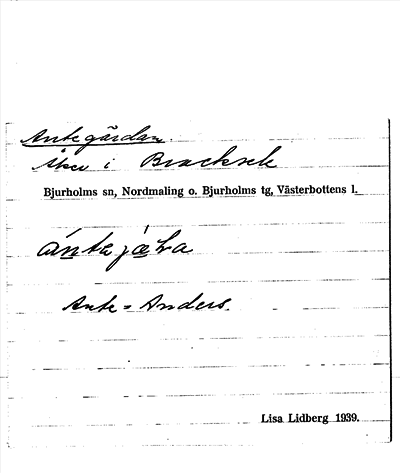 Antegärdan.
Åker i Bracksele
Bjurholms sn, Nordmaling o. Bjurholms tg, Västerbottens l.
Ante = Anders.
Lisa Lidberg 1939.